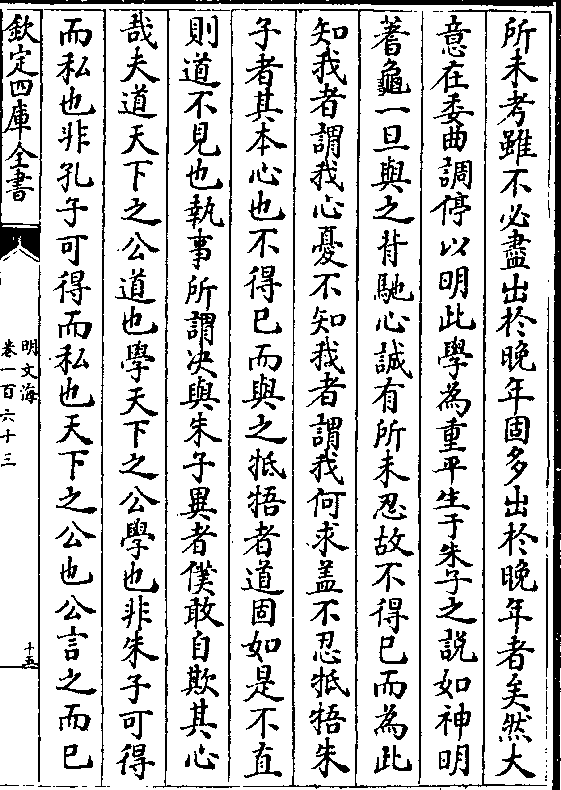 所未考雖不必盡出於晚年固多出於晚年者矣然大
意在委曲調停以明此學為重平生于朱子之說如神明
蓍龜一旦與之背馳心誠有所未忍故不得已而為此
知我者謂我心憂不知我者謂我何求盖不忍牴牾朱
子者其本心也不得已而與之牴牾者道固如是不直
則道不見也執事所謂决與朱子異者僕敢自欺其心
哉夫道天下之公道也學天下之公學也非朱子可得
而私也非孔子可得而私也天下之公也公言之而已
欽定四庫全書
明文海
卷一百六十三
十五